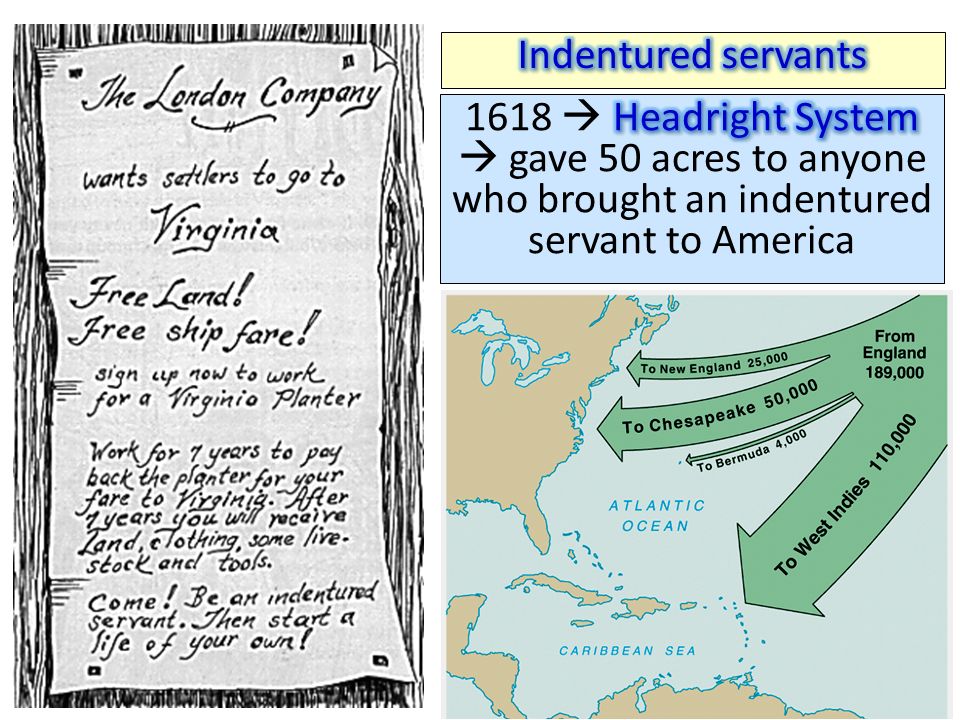 The London Company
wants settlers to go to
Virginia
Free Land!
Free ship fare!
sign up now to work
for a Virginia Planter
Work for 7 years to pay
back the planter for your
fare to Virginia. After
7 years you will receive
Land, clothing, some live-
stock and tools.
Come! Be an indentured
servant. Then start a
life of your own!
Indentured servants
1618 → Headright System
→ gave 50 acres to anyone
who brought an indentured
servant to America
From
England
189,000
To New England 25,000
To Chesapeake 50,000
To Bermuda 4,000
To West Indies 110,000
ATLANTIC
OCEAN
CARIBBEAN SEA